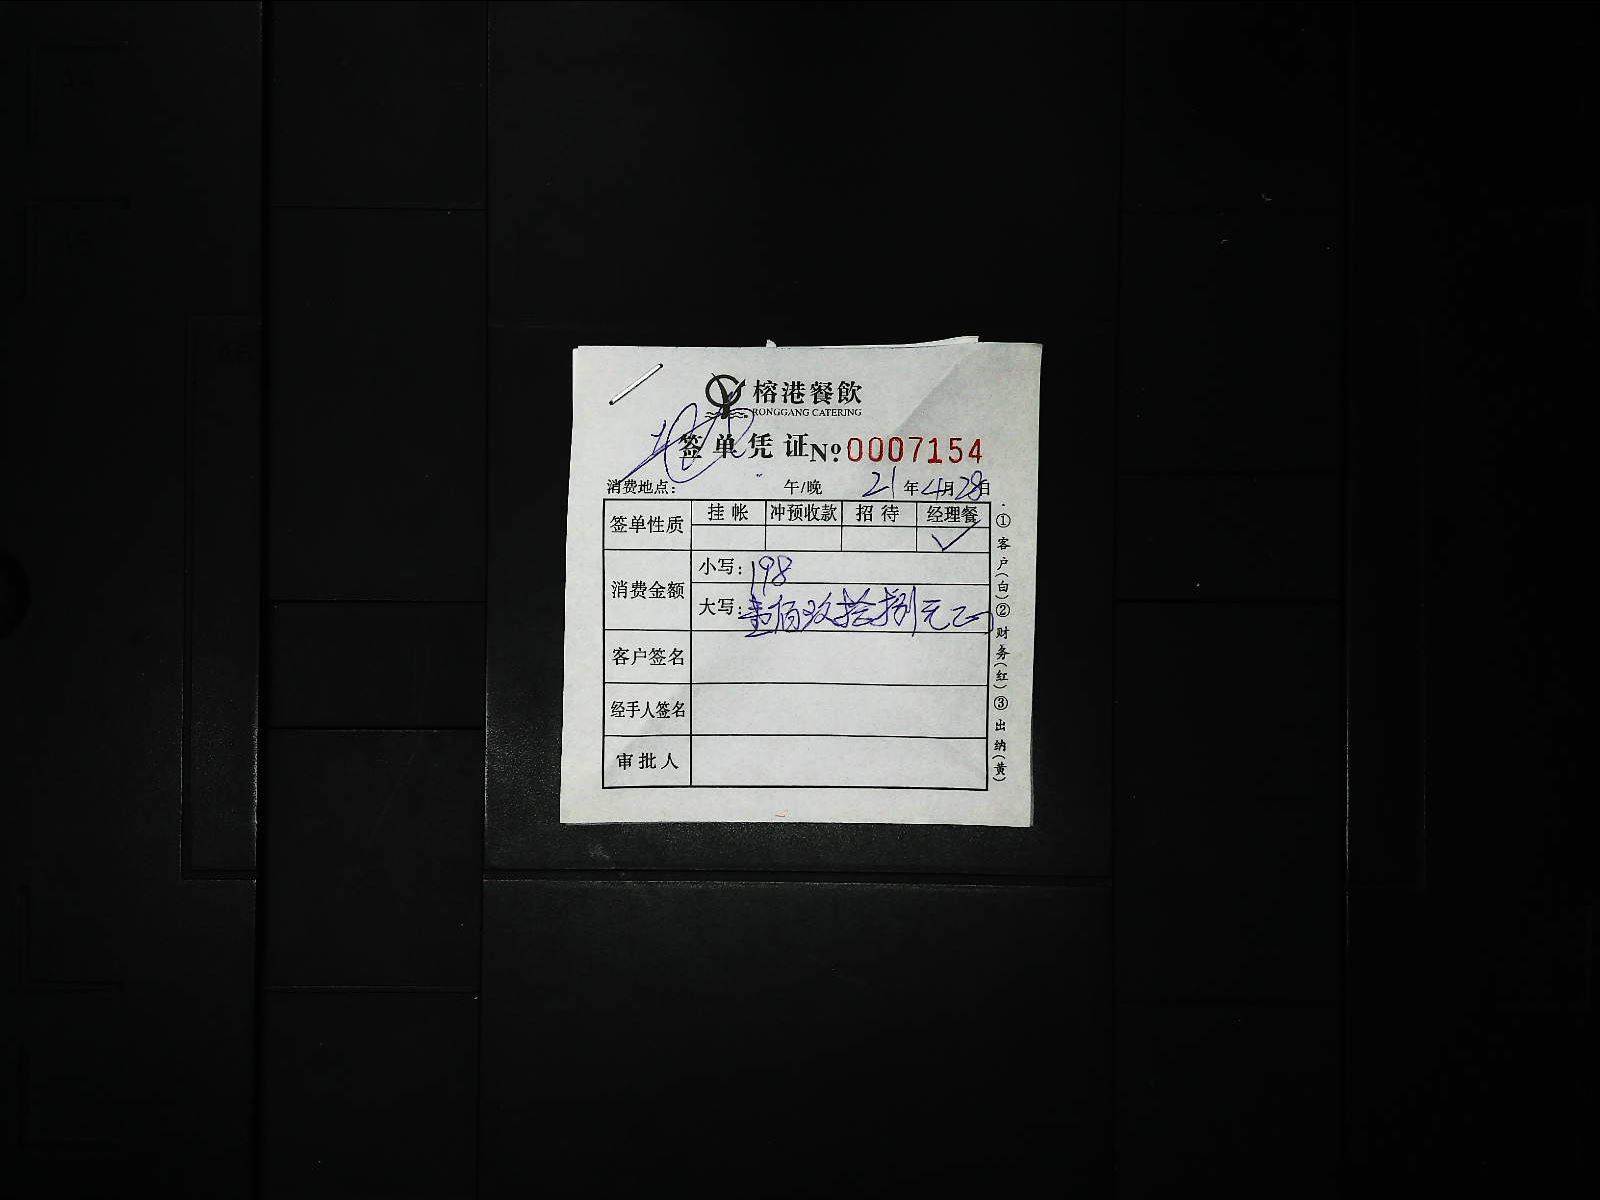 榕港餐飲
RONGGANG CATERING
签单凭证 Nº 0007154
消费地点： 午/晚 21年4月28日
签单性质 挂帐 冲预收款 招待 经理餐
✓
消费金额 小写：198
大写：壹佰玖拾捌元正
客户签名
经手人签名
审批人
①客户(白)②财务(红)③出纳(黄)